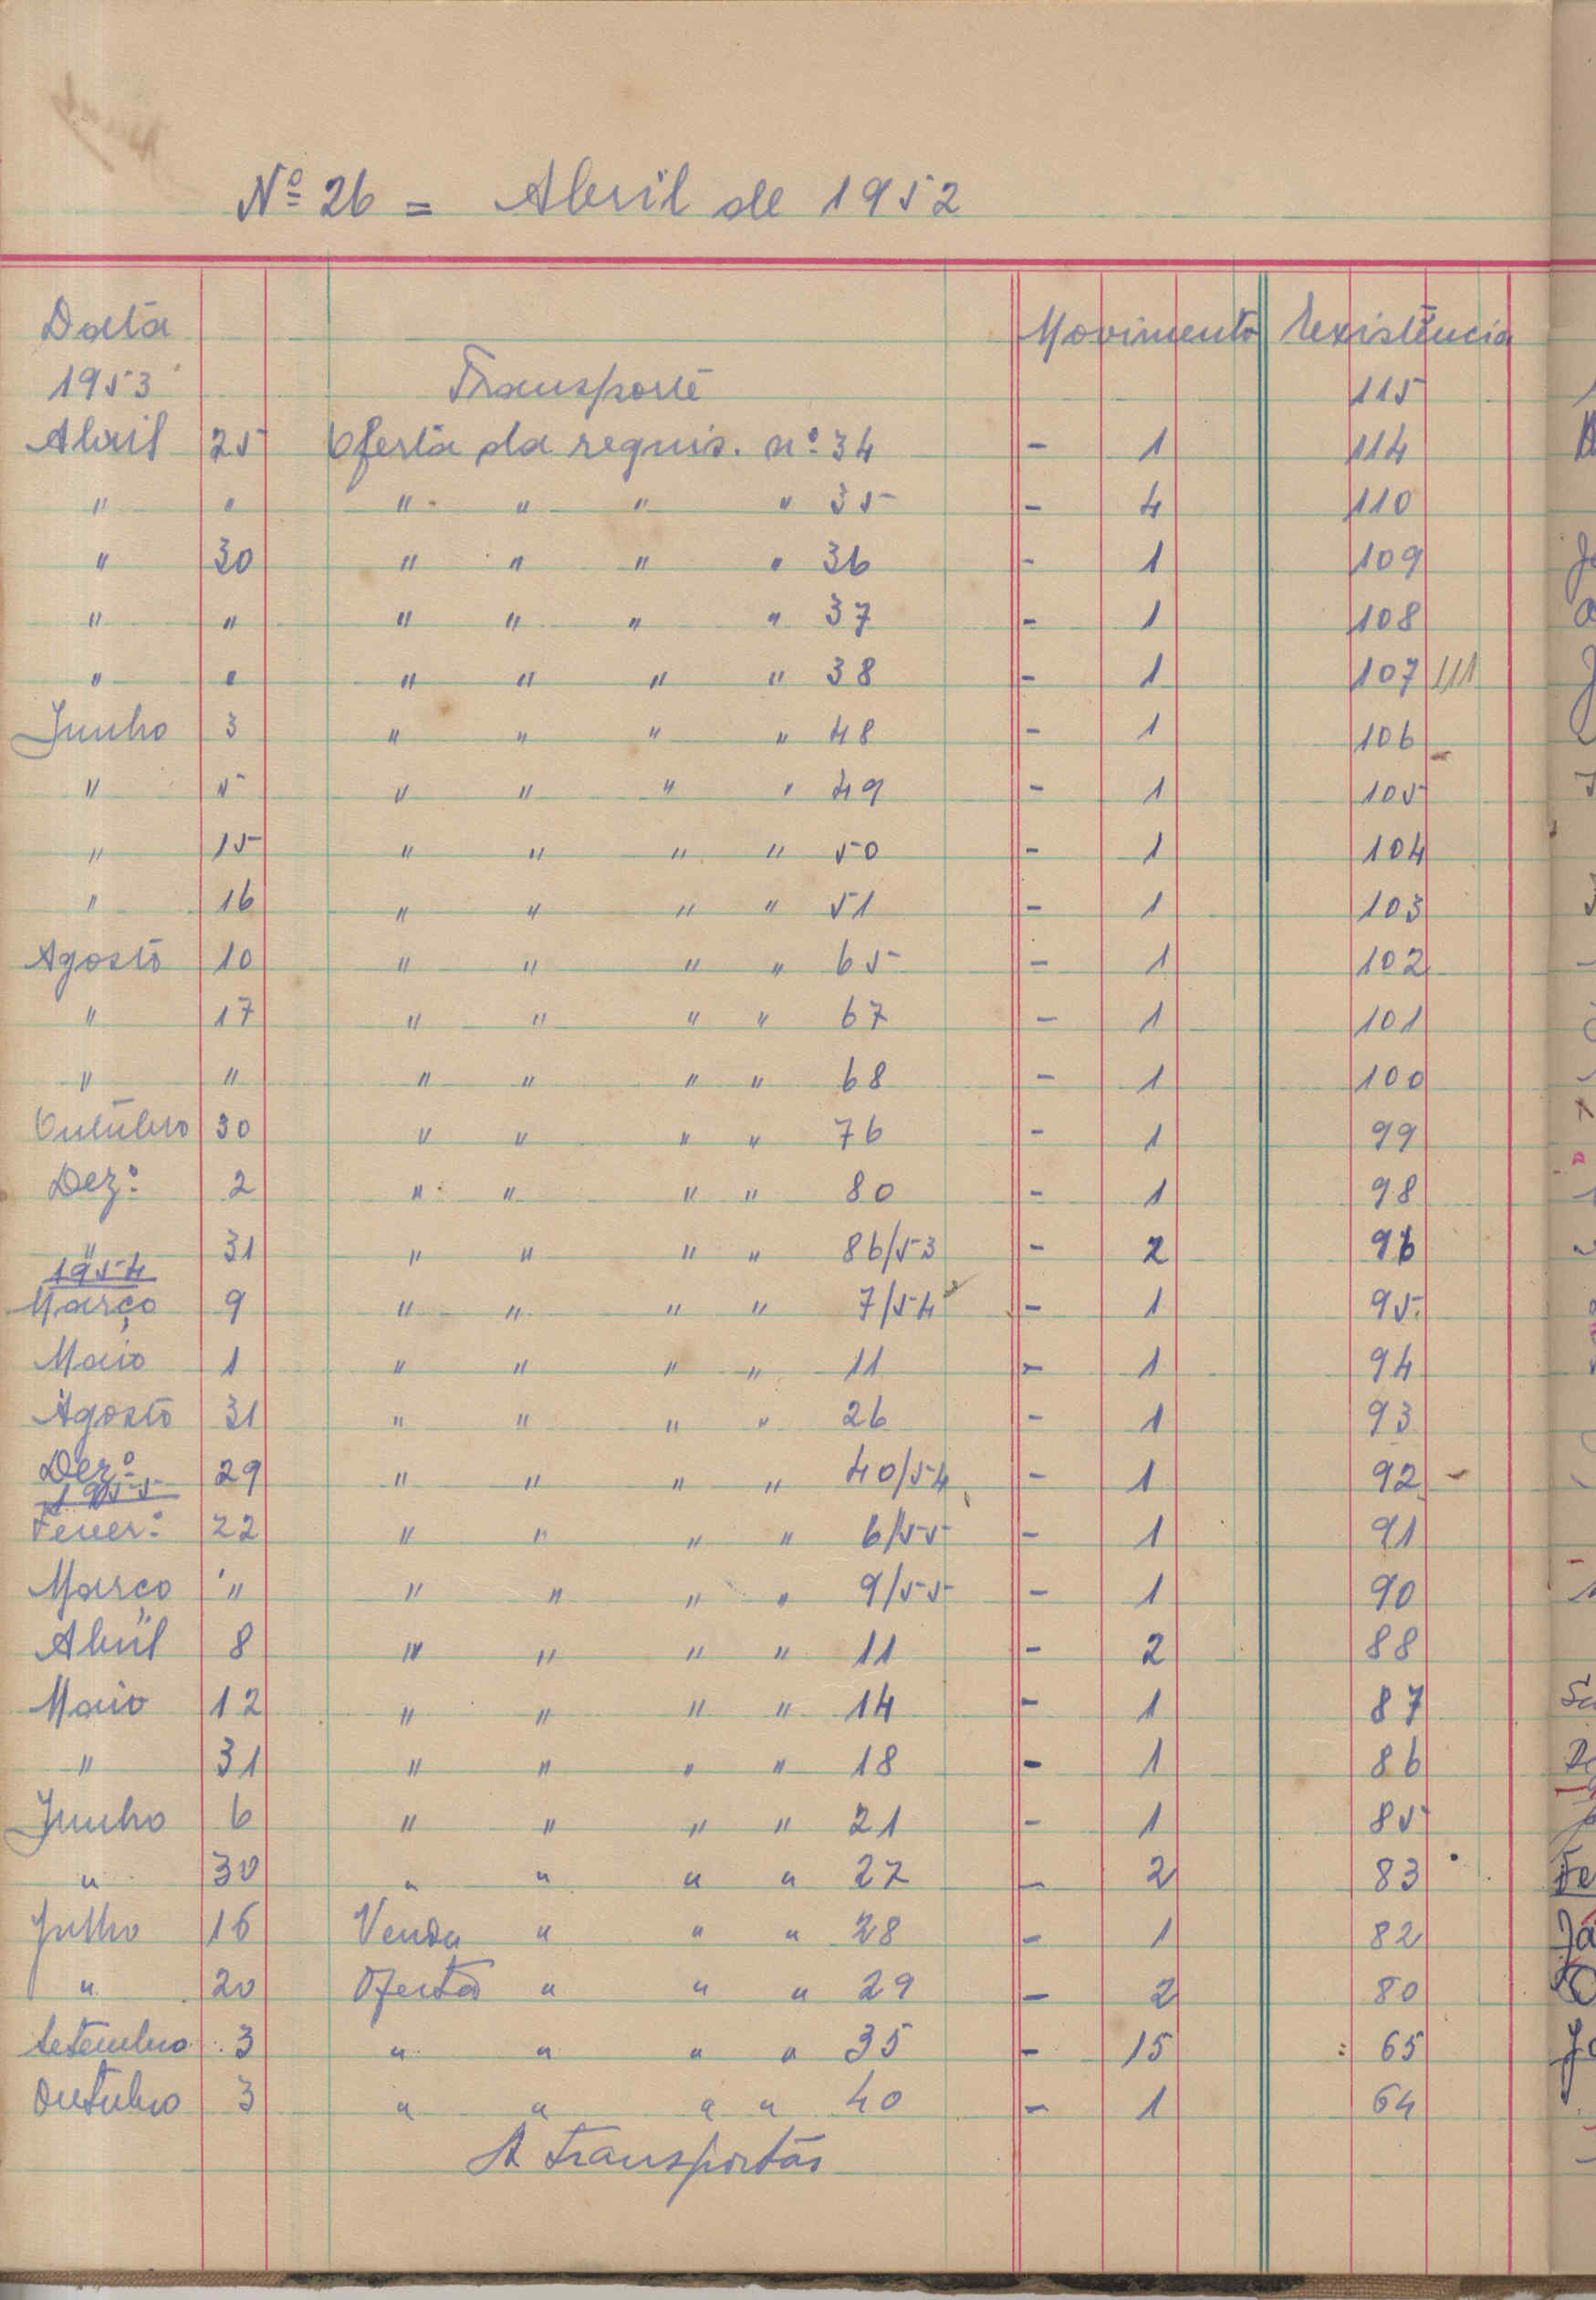 Nº 26 = Abril de 1952
Data Movimento Existência
1953 Transporte 115
Abril 25 Oferta da requis. nº 34 - 1 114
" " " " " " 35 - 4 110
" 30 " " " " 36 - 1 109
" " " " " " 37 - 1 108
" " " " " " 38 - 1 107 111
Junho 3 " " " " 48 - 1 106
" 5 " " " " 49 - 1 105
" 15 " " " " 50 - 1 104
" 16 " " " " 51 - 1 103
Agosto 10 " " " " 65 - 1 102
" 17 " " " " 67 - 1 101
" " " " " " 68 - 1 100
Outubro 30 " " " " 76 - 1 99
Dezº 2 " " " " 80 - 1 98
" 31 " " " " 86/53 - 2 96
1954
Março 9 " " " " 7/54 - 1 95
Maio 1 " " " " 11 - 1 94
Agosto 31 " " " " 26 - 1 93
Dezº 29 " " " " 40/54 - 1 92
1955
Feverº 22 " " " " 6/55 - 1 91
Março " " " " " 9/55 - 1 90
Abril 8 " " " " 11 - 2 88
Maio 12 " " " " 14 - 1 87
" 31 " " " " 18 - 1 86
Junho 6 " " " " 21 - 1 85
" 30 " " " " 27 - 2 83
Julho 16 Venda " " " 28 - 1 82
" 20 Oferta " " " 29 - 2 80
Setembro 3 " " " " 35 - 15 65
Outubro 3 " " " " 40 - 1 64
A transportar